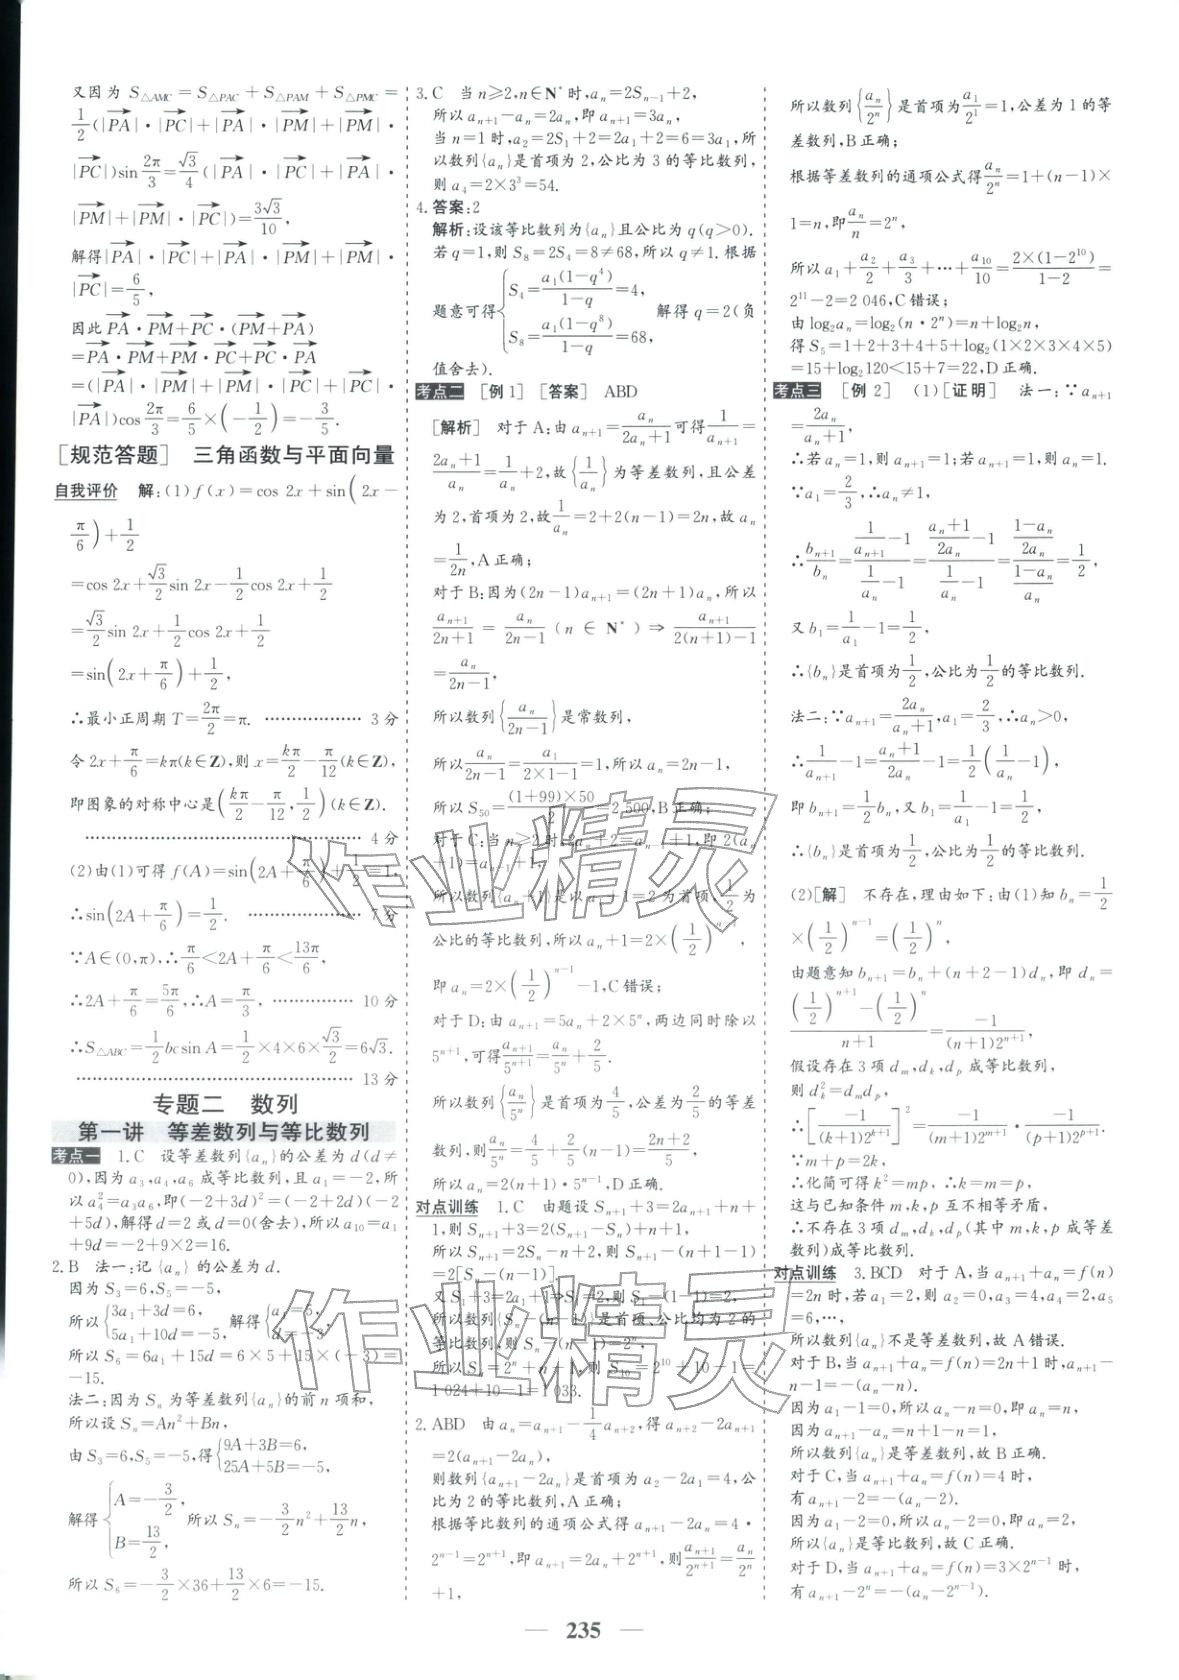 又因为 S△AMC=S△PAC+S△PAM+S△PMC=
1/2(|PA|·|PC|+|PA|·|PM|+|PM|·
|PC|)sin 2π/3=√3/4(|PA|·|PC|+|PA|·
|PM|+|PM|·|PC|)=3√3/10,
解得|PA|·|PC|+|PA|·|PM|+|PM|·
|PC|=6/5,
因此PA·PM+PC·(PM+PA)
=PA·PM+PM·PC+PC·PA
=(|PA|·|PM|+|PM|·|PC|+|PC|·
|PA|)cos 2π/3=6/5×(-1/2)=-3/5.
[规范答题] 三角函数与平面向量
自我评价 解:(1)f(x)=cos 2x+sin(2x-
π/6)+1/2
=cos 2x+√3/2 sin 2x-1/2 cos 2x+1/2
=√3/2 sin 2x+1/2 cos 2x+1/2
=sin(2x+π/6)+1/2,
∴最小正周期 T=2π/2=π. ………………3分
令 2x+π/6=kπ(k∈Z),则 x=kπ/2-π/12(k∈Z),
即图象的对称中心是(kπ/2-π/12,1/2)(k∈Z).
………………4分
(2)由(1)可得 f(A)=sin(2A+π/6)+1/2=1,
∴sin(2A+π/6)=1/2. ………………7分
∵A∈(0,π),∴π/6<2A+π/6<13π/6,
∴2A+π/6=5π/6,∴A=π/3, ………………10分
∴S△ABC=1/2 bcsin A=1/2×4×6×√3/2=6√3.
………………13分
专题二 数列
第一讲 等差数列与等比数列
考点一 1.C 设等差数列{aₙ}的公差为 d(d≠
0),因为 a₃,a₄,a₆ 成等比数列,且 a₁=-2,所
以 a₄²=a₃a₆,即(-2+3d)²=(-2+2d)(-2
+5d),解得 d=2 或 d=0(舍去),所以 a₁₀=a₁
+9d=-2+9×2=16.
2.B 法一:记{aₙ}的公差为 d.
因为 S₃=6,S₅=-5,
所以{3a₁+3d=6, 5a₁+10d=-5, 解得{a₁=5, d=-3,
所以 S₆=6a₁+15d=6×5+15×(-3)=
-15.
法二:因为 Sₙ 为等差数列{aₙ}的前 n 项和,
所以设 Sₙ=An²+Bn,
由 S₃=6,S₅=-5,得{9A+3B=6, 25A+5B=-5,
解得{A=-3/2, B=13/2, 所以 Sₙ=-3/2n²+13/2n,
所以 S₆=-3/2×36+13/2×6=-15.
3.C 当 n≥2,n∈N*时,aₙ=2Sₙ₋₁+2,
所以 aₙ₊₁-aₙ=2aₙ,即 aₙ₊₁=3aₙ,
当 n=1 时,a₂=2S₁+2=2a₁+2=6=3a₁,所
以数列{aₙ}是首项为 2,公比为 3 的等比数列,
则 a₄=2×3³=54.
4.答案:2
解析:设该等比数列为{aₙ}且公比为 q(q>0).
若 q=1,则 S₈=2S₄=8≠68,所以 q≠1. 根据
题意可得{S₄=a₁(1-q⁴)/(1-q)=4, S₈=a₁(1-q⁸)/(1-q)=68, 解得 q=2(负
值舍去).
考点二 [例1] [答案] ABD
[解析] 对于 A:由 aₙ₊₁=aₙ/(2aₙ+1)可得1/aₙ₊₁=
(2aₙ+1)/aₙ=1/aₙ+2,故{1/aₙ}为等差数列,且公差
为 2,首项为 2,故1/aₙ=2+2(n-1)=2n,故 aₙ
=1/2n,A 正确;
对于 B:因为(2n-1)aₙ₊₁=(2n+1)aₙ,所以
aₙ₊₁/(2n+1)=aₙ/(2n-1)(n∈N*)⇒aₙ₊₁/(2(n+1)-1)
=aₙ/(2n-1),
所以数列{aₙ/(2n-1)}是常数列,
所以aₙ/(2n-1)=a₁/(2×1-1)=1,所以 aₙ=2n-1,
所以 S₅₀=(1+99)×50/2=2 500,B 正确;
对于 C:当 n≥2 时,2aₙ+2=aₙ₋₁+1,即 2(aₙ
+1)=aₙ₋₁+1,
所以数列{aₙ+1}是以a₁+1=2为首项,1/2为
公比的等比数列,所以 aₙ+1=2×(1/2)ⁿ⁻¹,
即 aₙ=2×(1/2)ⁿ⁻¹-1,C 错误;
对于 D:由 aₙ₊₁=5aₙ+2×5ⁿ,两边同时除以
5ⁿ⁺¹,可得aₙ₊₁/5ⁿ⁺¹=aₙ/5ⁿ+2/5.
所以数列{aₙ/5ⁿ}是首项为4/5,公差为2/5的等差
数列,则aₙ/5ⁿ=4/5+2/5(n-1)=(2n+2)/5,
所以 aₙ=2(n+1)·5ⁿ⁻¹,D 正确.
对点训练 1.C 由题设 Sₙ₊₁+3=2aₙ₊₁+n+
1,则 Sₙ₊₁+3=2(Sₙ₊₁-Sₙ)+n+1,
所以 Sₙ₊₁=2Sₙ-n+2,则 Sₙ₊₁-(n+1-1)
=2[Sₙ-(n-1)].
又 S₁+3=2a₁+1⇒S₁=2,则 S₁-(1-1)=2,
所以数列{Sₙ-(n-1)}是首项、公比均为 2 的
等比数列,则 Sₙ-(n-1)=2ⁿ,
所以 Sₙ=2ⁿ+n-1,则 S₁₀=2¹⁰+10-1=
1 024+10-1=1 033.
2.ABD 由 aₙ=aₙ₊₁-1/4aₙ₊₂,得 aₙ₊₂-2aₙ₊₁
=2(aₙ₊₁-2aₙ),
则数列{aₙ₊₁-2aₙ}是首项为 a₂-2a₁=4,公
比为 2 的等比数列,A 正确;
根据等比数列的通项公式得 aₙ₊₁-2aₙ=4·
2ⁿ⁻¹=2ⁿ⁺¹,即 aₙ₊₁=2aₙ+2ⁿ⁺¹,则aₙ₊₁/2ⁿ⁺¹=aₙ/2ⁿ
+1,
所以数列{aₙ/2ⁿ}是首项为a₁/2¹=1,公差为 1 的等
差数列,B 正确;
根据等差数列的通项公式得aₙ/2ⁿ=1+(n-1)×
1=n,即aₙ/n=2ⁿ,
所以 a₁+a₂/2+a₃/3+…+a₁₀/10=2×(1-2¹⁰)/(1-2)=
2¹¹-2=2 046,C 错误;
由 log₂aₙ=log₂(n·2ⁿ)=n+log₂n,
得 S₅=1+2+3+4+5+log₂(1×2×3×4×5)
=15+log₂120<15+7=22,D 正确.
考点三 [例2] (1)[证明] 法一:∵aₙ₊₁
=2aₙ/(aₙ+1),
∴若 aₙ=1,则 aₙ₊₁=1;若 aₙ₊₁=1,则 aₙ=1.
∵a₁=2/3,∴aₙ≠1,
∴bₙ₊₁/bₙ=(1/aₙ₊₁-1)/(1/aₙ-1)=((aₙ+1)/2aₙ-1)/(1/aₙ-1)=((1-aₙ)/2aₙ)/((1-aₙ)/aₙ)=1/2,
又 b₁=1/a₁-1=1/2,
∴{bₙ}是首项为1/2,公比为1/2的等比数列.
法二:∵aₙ₊₁=2aₙ/(aₙ+1),a₁=2/3,∴aₙ>0,
∴1/aₙ₊₁-1=(aₙ+1)/2aₙ-1=1/2(1/aₙ-1),
即 bₙ₊₁=1/2bₙ,又 b₁=1/a₁-1=1/2,
∴{bₙ}是首项为1/2,公比为1/2的等比数列.
(2)[解] 不存在,理由如下:由(1)知 bₙ=1/2
×(1/2)ⁿ⁻¹=(1/2)ⁿ,
由题意知 bₙ₊₁=bₙ+(n+2-1)dₙ,即 dₙ=
((1/2)ⁿ⁺¹-(1/2)ⁿ)/(n+1)=-1/((n+1)2ⁿ⁺¹),
假设存在 3 项 dₘ,dₖ,dₚ 成等比数列,
则 dₖ²=dₘdₚ,
∴[-1/((k+1)2ᵏ⁺¹)]²=-1/((m+1)2ᵐ⁺¹)·-1/((p+1)2ᵖ⁺¹),
∵m+p=2k,
∴化简可得 k²=mp,∴k=m=p,
这与已知条件 m,k,p 互不相等矛盾,
∴不存在 3 项 dₘ,dₖ,dₚ(其中 m,k,p 成等差
数列)成等比数列.
对点训练 3.BCD 对于 A,当 aₙ₊₁+aₙ=f(n)
=2n 时,若 a₁=2,则 a₂=0,a₃=4,a₄=2,a₅
=6,…,
所以数列{aₙ}不是等差数列,故 A 错误.
对于 B,当 aₙ₊₁+aₙ=f(n)=2n+1 时,aₙ₊₁-
n-1=-(aₙ-n).
因为 a₁-1=0,所以 aₙ-n=0,即 aₙ=n,
因为 aₙ₊₁-aₙ=n+1-n=1,
所以数列{aₙ}是等差数列,故 B 正确.
对于 C,当 aₙ₊₁+aₙ=f(n)=4 时,
有 aₙ₊₁-2=-(aₙ-2).
因为 a₁-2=0,所以 aₙ-2=0,即 aₙ=2,
所以{aₙ}是等比数列,故 C 正确.
对于 D,当 aₙ₊₁+aₙ=f(n)=3×2ⁿ⁻¹ 时,
有 aₙ₊₁-2ⁿ=-(aₙ-2ⁿ⁻¹).
作业精灵
作业精灵
— 235 —